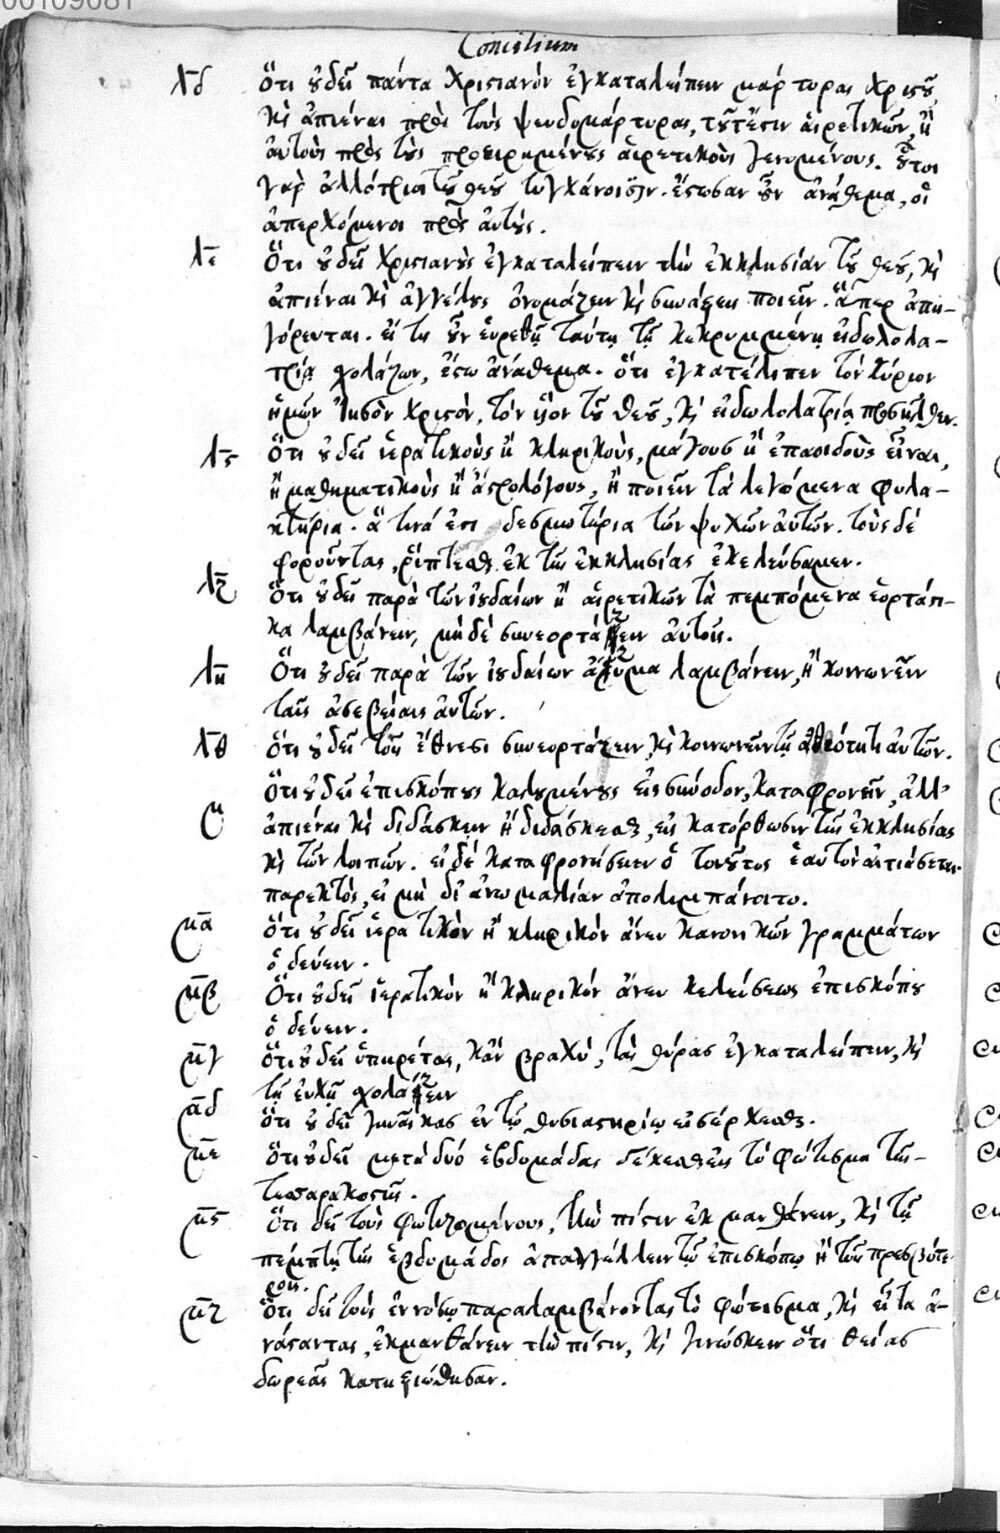 00109081
Concilium
λδ ὅτι οὐ δεῖ πάντα χριστιανὸν ἐγκαταλείπειν μάρτυρας χριστοῦ
καὶ ἀπιέναι πρὸς τοὺς ψευδομάρτυρας, τουτέστιν αἱρετικῶν, ἢ
αὐτοὺς πρὸς τοὺς προειρημένους αἱρετικοὺς γενομένους. οὗτοι
γὰρ ἀλλότριοι τοῦ θεοῦ τυγχάνουσιν. ἔστωσαν οὖν ἀνάθεμα, οἱ
ἀπερχόμενοι πρὸς αὐτούς.
λε Ὅτι οὐ δεῖ χριστιανοὺς ἐγκαταλείπειν τὴν ἐκκλησίαν τοῦ θεοῦ, καὶ
ἀπιέναι καὶ ἀγγέλους ὀνομάζειν καὶ συνάξεις ποιεῖν. ἅπερ ἀπη-
γόρευται. εἴ τις οὖν εὑρεθῇ ταύτῃ τῇ κεκρυμμένῃ εἰδωλολα-
τρίᾳ σχολάζων, ἔστω ἀνάθεμα. ὅτι ἐγκατέλιπεν τὸν κύριον
ἡμῶν Ἰησοῦν χριστὸν, τὸν υἱὸν τοῦ θεοῦ, καὶ εἰδωλολατρίᾳ προσῆλθεν.
λς Ὅτι οὐ δεῖ ἱερατικοὺς ἢ κληρικοὺς, μάγους ἢ ἐπαοιδοὺς εἶναι,
ἢ μαθηματικοὺς ἢ ἀστρολόγους, ἢ ποιεῖν τὰ λεγόμενα φυλα-
κτήρια. ἅ τινά ἐστι δεσμωτήρια τῶν ψυχῶν αὐτῶν. τοὺς δὲ
φοροῦντας, ῥίπτεσθαι ἐκ τῆς ἐκκλησίας ἐκελεύσαμεν.
λζ Ὅτι οὐ δεῖ παρὰ τῶν ἰουδαίων ἢ αἱρετικῶν τὰ πεμπόμενα ἑορτάστι-
κα λαμβάνειν, μηδὲ συνεορτάζειν αὐτοῖς.
λη Ὅτι οὐ δεῖ παρὰ τῶν ἰουδαίων ἄζυμα λαμβάνειν, ἢ κοινωνεῖν
ταῖς ἀσεβείαις αὐτῶν.
λθ ὅτι οὐ δεῖ τοῖς ἔθνεσι συνεορτάζειν, καὶ κοινωνεῖν τῇ ἀθεότητι αὐτῶν.
μ Ὅτι οὐ δεῖ ἐπισκόπους καλουμένους εἰς σύνοδον, καταφρονεῖν, ἀλλ’
ἀπιέναι καὶ διδάσκειν ἢ διδάσκεσθαι, εἰς κατόρθωσιν τῆς ἐκκλησίας
καὶ τῶν λοιπῶν. εἰ δὲ καταφρονήσειεν ὁ τοιοῦτος ἑαυτὸν αἰτιάσεται.
παρεκτὸς, εἰ μὴ δι’ ἀνωμαλίαν ἀπολιμπάνοιτο.
μα ὅτι οὐ δεῖ ἱερατικὸν ἢ κληρικὸν ἄνευ κανονικῶν γραμμάτων
ὁδεύειν.
μβ Ὅτι οὐ δεῖ ἱερατικὸν ἢ κληρικὸν ἄνευ κελεύσεως ἐπισκόπου
ὁδεύειν.
μγ ὅτι οὐ δεῖ ὑπηρέτας, κἂν βραχὺ, τὰς θύρας ἐγκαταλείπειν, καὶ
τῇ εὐχῇ σχολάζειν
μδ ὅτι οὐ δεῖ γυναῖκας ἐν τῷ θυσιαστηρίῳ εἰσέρχεσθαι.
με ὅτι οὐ δεῖ μετὰ δύο ἑβδομάδας δέχεσθαι εἰς τὸ φώτισμα τῆς-
τεσσαρακοστῆς.
μς Ὅτι δεῖ τοὺς φωτιζομένους, τὴν πίστιν ἐκμανθάνειν, καὶ τῇ
πέμπτῃ τῆς ἑβδομάδος ἀπαγγέλλειν τῷ ἐπισκόπῳ ἢ τοῖς πρεσβύτε-
ροις.
μζ ὅτι δεῖ τοὺς ἐν νόσῳ παραλαμβάνοντας τὸ φώτισμα, καὶ εἶτα ἀ-
νάσταντας, ἐκμανθάνειν τὴν πίστιν, καὶ γινώσκειν ὅτι θείας
δωρεᾶς κατηξιώθησαν.